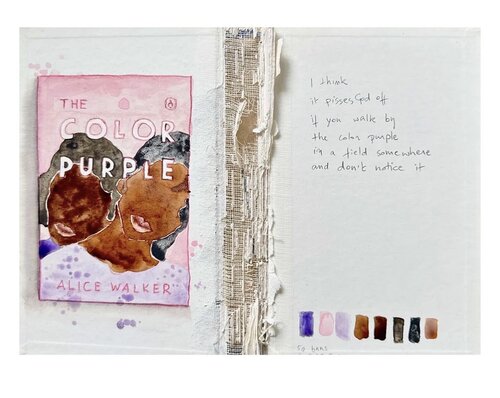 THE
COLOR
PURPLE
ALICE WALKER
I think
it pisses God off
if you walk by
the color purple
in a field somewhere
and don't notice it